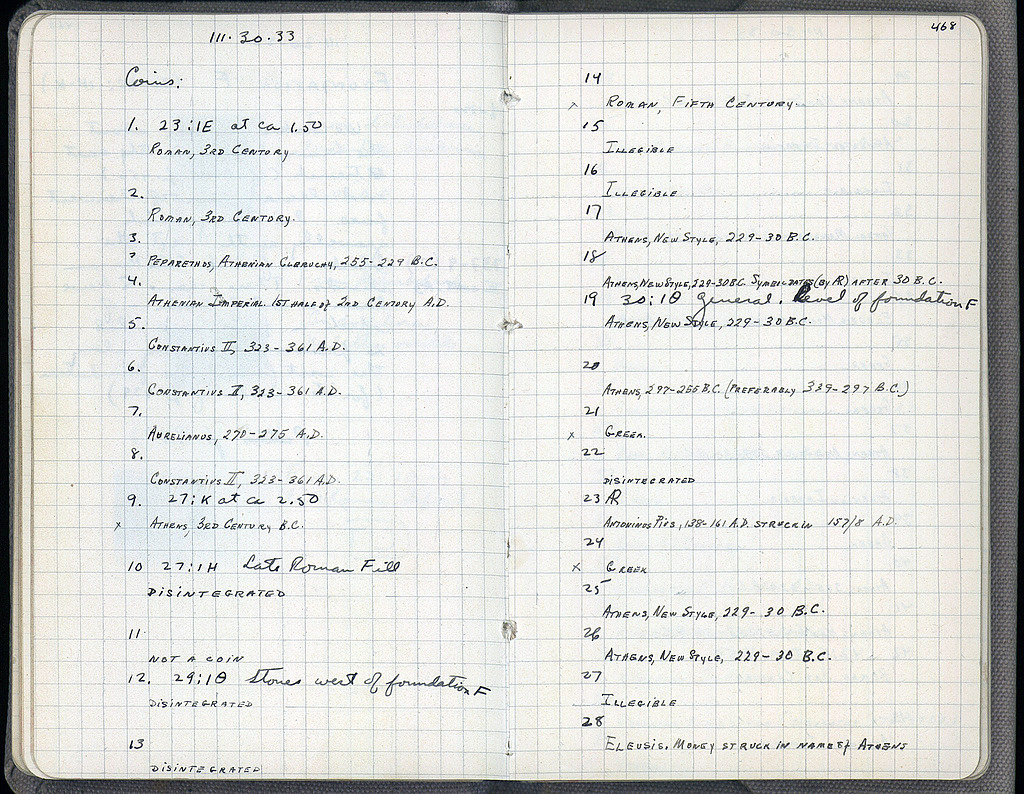 111·30·33
Coins:
1. 23:1E at ca 1.50
ROMAN, 3RD CENTURY
2.
ROMAN, 3RD CENTURY.
3.
? PEPARETHOS, ATHENIAN CLERUCHY, 255-229 B.C.
4.
ATHENIAN IMPERIAL. 1ST HALF OF 2ND CENTURY A.D.
5.
CONSTANTIUS II, 323-361 A.D.
6.
CONSTANTIUS II, 323-361 A.D.
7.
AURELIANUS, 270-275 A.D.
8.
CONSTANTIUS II, 323-361 A.D.
9. 27:K at ca 2.50
x ATHENS, 3RD CENTURY B.C.
10 27:1H Late Roman Fill
DISINTEGRATED
11.
NOT A COIN
12. 29:1Θ Stones west of foundation F
DISINTEGRATED
13
DISINTEGRATED
468
14
x ROMAN, FIFTH CENTURY.
15
ILLEGIBLE
16
ILLEGIBLE
17
ATHENS, NEW STYLE, 229-30 B.C.
18
ATHENS, NEW STYLE, 229-30 B.C. SYMBOL DATES (BY Æ) AFTER 30 B.C.
19 30:1Θ general. Level of foundation F
ATHENS, NEW STYLE, 229-30 B.C.
20
ATHENS, 297-255 B.C. (PREFERABLY 339-297 B.C.)
21
x GREEK.
22
DISINTEGRATED
23 AR
ANTONINOS PIUS, 138-161 A.D. STRUCK IN 157/8 A.D.
24
x GREEK
25
ATHENS, NEW STYLE, 229-30 B.C.
26
ATHENS, NEW STYLE, 229-30 B.C.
27
ILLEGIBLE
28
ELEUSIS. MONEY STRUCK IN NAME OF ATHENS